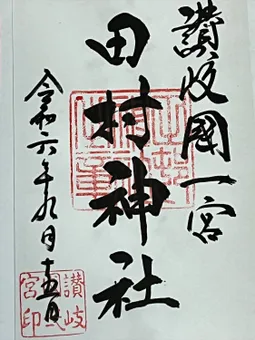 讃岐國一宮
田村神社
令和六年九月十五日
讃岐
一宮印